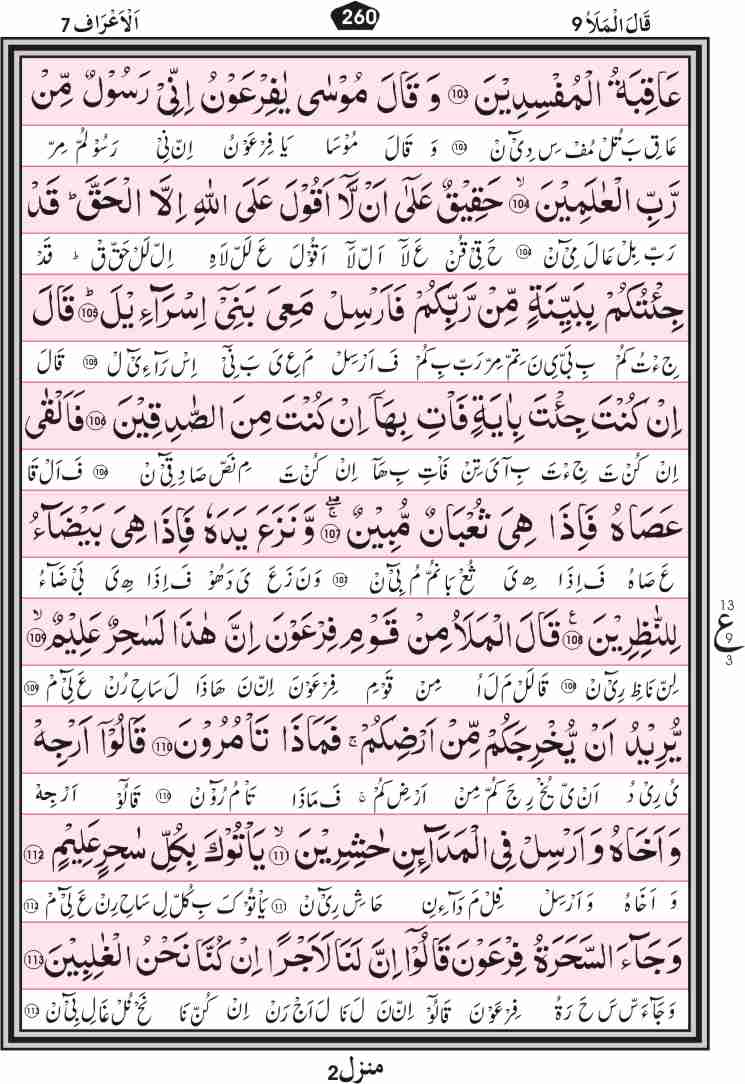 قَالَ الْمَلَاُ 9
260
اَلْاَعْرَاف 7
عَاقِبَةُ الْمُفْسِدِيْنَ ۝103 وَ قَالَ مُوْسٰى يٰفِرْعَوْنُ اِنِّىْ رَسُوْلٌ مِّنْ
عَاقِ بَ تُلْ مُفْ سِ دِىْٓ نْ ۝103 وَ قَالَ مُوْسَا يَا فِرْعَوْنُ اِنْ نِىْ رَسُوْ لُمْ مِرْ
رَّبِّ الْعٰلَمِيْنَ ۝104ۙ حَقِيْقٌ عَلٰٓى اَنْ لَّاۤ اَقُوْلَ عَلَى اللهِ اِلَّا الْحَقَّ ؕ قَدْ
رَبّ بِلْ عَالَ مِىْٓ نْ ۝104 حَ قِىْ قُنْ عَ لَآ اَلْ لَآ اَقُوْلَ عَ لَلْ لَاهِ اِلْ لَلْ حَقّ قْ ؕ قَدْ
جِئْتُكُمْ بِبَيِّنَةٍ مِّنْ رَّبِّكُمْ فَاَرْسِلْ مَعِىَ بَنِىْۤ اِسْرَآءِيْلَ ؕ۝105 قَالَ
جِ ءْ تُ كُمْ بِ بَىّ يِ نَ تِمّ مِرْ رَبّ بِ كُمْ فَ اَرْسِلْ مَ عِ ىَ بَ نِىْٓ اِسْ رَآءِىْٓ لْ ۝105 قَالَ
اِنْ كُنْتَ جِئْتَ بِاٰيَةٍ فَاْتِ بِهَاۤ اِنْ كُنْتَ مِنَ الصّٰدِقِيْنَ ۝106 فَاَلْقٰى
اِنْ كُنْ تَ جِ ءْ تَ بِ آىَ تِنْ فَاْتِ بِ هَآ اِنْ كُنْ تَ مِ نَصّ صَادِ قِىْٓ نْ ۝106 فَ اَلْ قَا
عَصَاهُ فَاِذَا هِىَ ثُعْبَانٌ مُّبِيْنٌ ۝107ۚۖ وَّنَزَعَ يَدَهٗ فَاِذَا هِىَ بَيْضَآءُ
عَ صَاهُ فَ اِذَا هِ ىَ ثُعْ بَا نُمّ مُ بِىْٓ نْ ۝107 وَ نَ زَ عَ ىَ دَهُوْ فَ اِذَا هِ ىَ بَىْ ضَآءُ
لِلنّٰظِرِيْنَ ۝108ۧ قَالَ الْمَلَاُ مِنْ قَوْمِ فِرْعَوْنَ اِنَّ هٰذَا لَسٰحِرٌ عَلِيْمٌ ۝109ۙ
لِنّ نَا ظِ رِىْٓ نْ ۝108 قَالَلْ مَ لَ ءُ مِنْ قَوْمِ فِرْعَوْنَ اِنْ نَ هَاذَا لَ سَاحِ رُنْ عَ لِىْٓ مْ ۝109
13
ع
9
3
يُّرِيْدُ اَنْ يُّخْرِجَكُمْ مِّنْ اَرْضِكُمْ ۚ فَمَاذَا تَاْمُرُوْنَ ۝110 قَالُوْۤا اَرْجِهْ
ىُ رِىْ دُ اَنْ ىّ يُخْ رِجَ كُمّ مِنْ اَرْضِ كُمْ ۚ فَ مَاذَا تَاْ مُ رُوْٓ نْ ۝110 قَالُوْٓ اَرْجِهْ
وَاَخَاهُ وَاَرْسِلْ فِى الْمَدَآئِنِ حٰشِرِيْنَ ۝11ۙ يَاْتُوْكَ بِكُلِّ سٰحِرٍ عَلِيْمٍ ۝112
وَ اَخَاهُ وَ اَرْسِلْ فِلْ مَ دَآءِنِ حَا شِ رِىْٓ نْ ۝11 يَاْتُوْ كَ بِ كُلّ لِ سَاحِ رِنْ عَ لِىْٓ مْ ۝112
وَجَآءَ السَّحَرَةُ فِرْعَوْنَ قَالُوْۤا اِنَّ لَنَا لَاَجْرًا اِنْ كُنَّا نَحْنُ الْغٰلِبِيْنَ ۝113
وَ جَآءَ سّ سَ حَ رَةُ فِرْعَوْنَ قَالُوْٓ اِنْ نَ لَ نَا لَ اَجْ رَنْ اِنْ كُنّ نَا نَحْ نُلْ غَالِ بِىْٓ نْ ۝113
منزل2